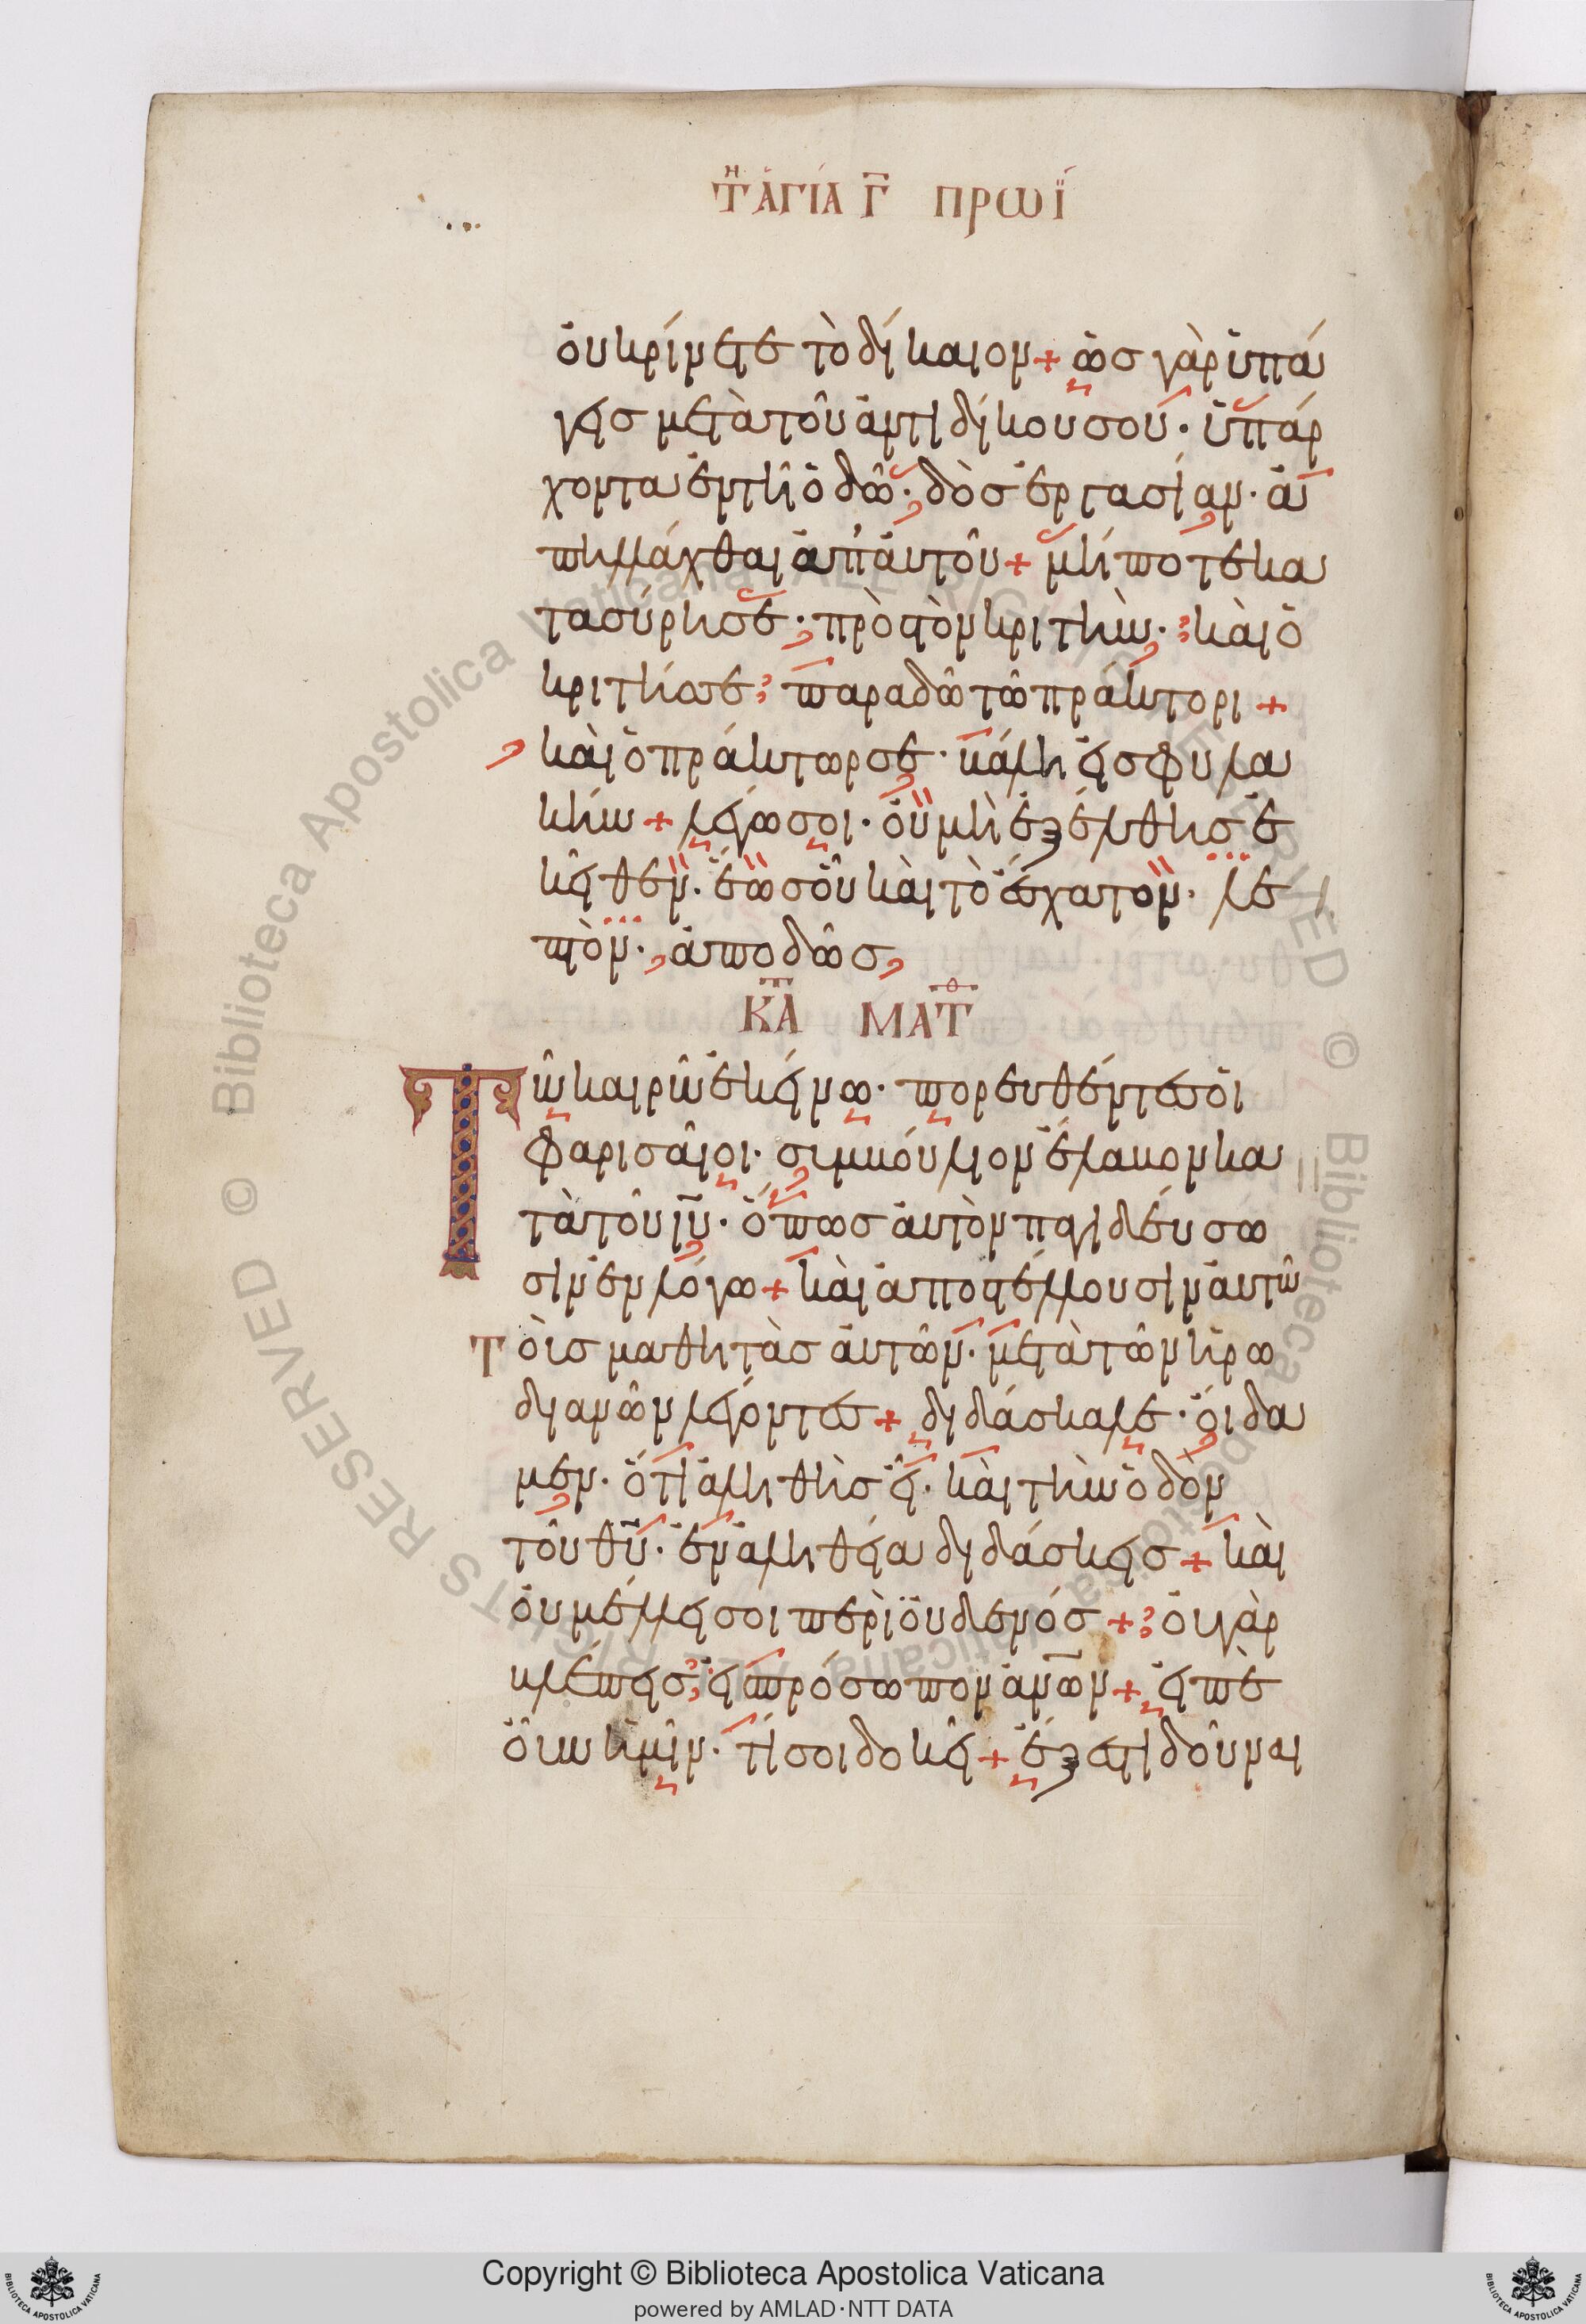 Τῆ ἁγία Γ πρωΐ
ὀυ κρίνετε τὸ δίκαιον + ὡσ γὰρ ὑπά
γεισ μετὰ τοῦ ἀντιδίκου σου· ὑπάρ
χοντα ἐν τῆ ὁδῶ· δὸσ ἐργασίαν· ἀ
πηλλάχθαι ἀπ' ἀυτοῦ + μήποτε κα
τασύρησε· πρὸσ τὸν κριτὴν· κὰι ὁ
κριτήσ σε παραδῶ τῶ πράκτορι +
κὰι ὁ πράκτωρ σε· βάλη εἰσ φυλα
κήν + λέγω σοι· ὀυ μὴ ἐξέλθησ ἐ
κεῖθεν· ἕωσ οὗ κὰι τὸ ἔσχατον· λε
πτὸν· ἀποδῶσ
Κ͞Α ΜΑΤΘ
Τῶ καιρῶ ἐκείνω· πορευθέντεσ ὁι
φαρισαῖοι· συμβούλιον ἔλαβον κα
τὰ τοῦ ι͞υ· ὅπωσ ἀυτὸν παγιδέυσω
σιν ἐν λόγω + κὰι ἀποστέλλουσιν ἀυτῶ
τὸισ μαθητὰσ ἀυτῶν· μετὰ τῶν ἡρω
διανῶν λέγοντεσ + διδάσκαλε· ὄιδα
μεν· ὅτι ἀληθὴσ εἶ· κὰι τὴν ὁδὸν
τοῦ θ͞υ· ἐν ἀληθεία διδάσκεισ + κὰι
ὀυ μέλλει σοι περὶ ὀυδενόσ + ὀυ γὰρ
βλέπεισ εἰσ πρόσωπον ἀν͞ων + εἰπὲ
ὀῦν ἡμῖν· τί σοι δοκεῖ + ἔξεστι δοῦναι
Copyright © Biblioteca Apostolica Vaticana
powered by AMLAD·NTT DATA